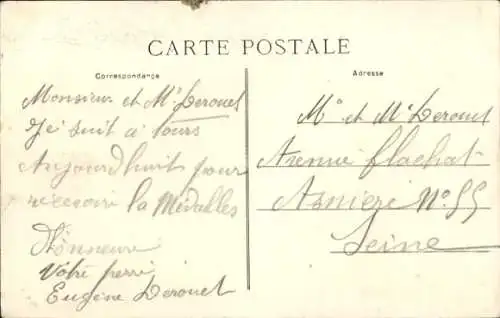 CARTE POSTALE
Correspondance
Monsieur et Me Derouet
Je suit a tours
Aujourdhuit pour
recevoir la Médalles
D'Honneure
Votre
Eugène Derouet
Adresse
Me et Me Derouet
Avenue flachat
Asniere No 55
Seine